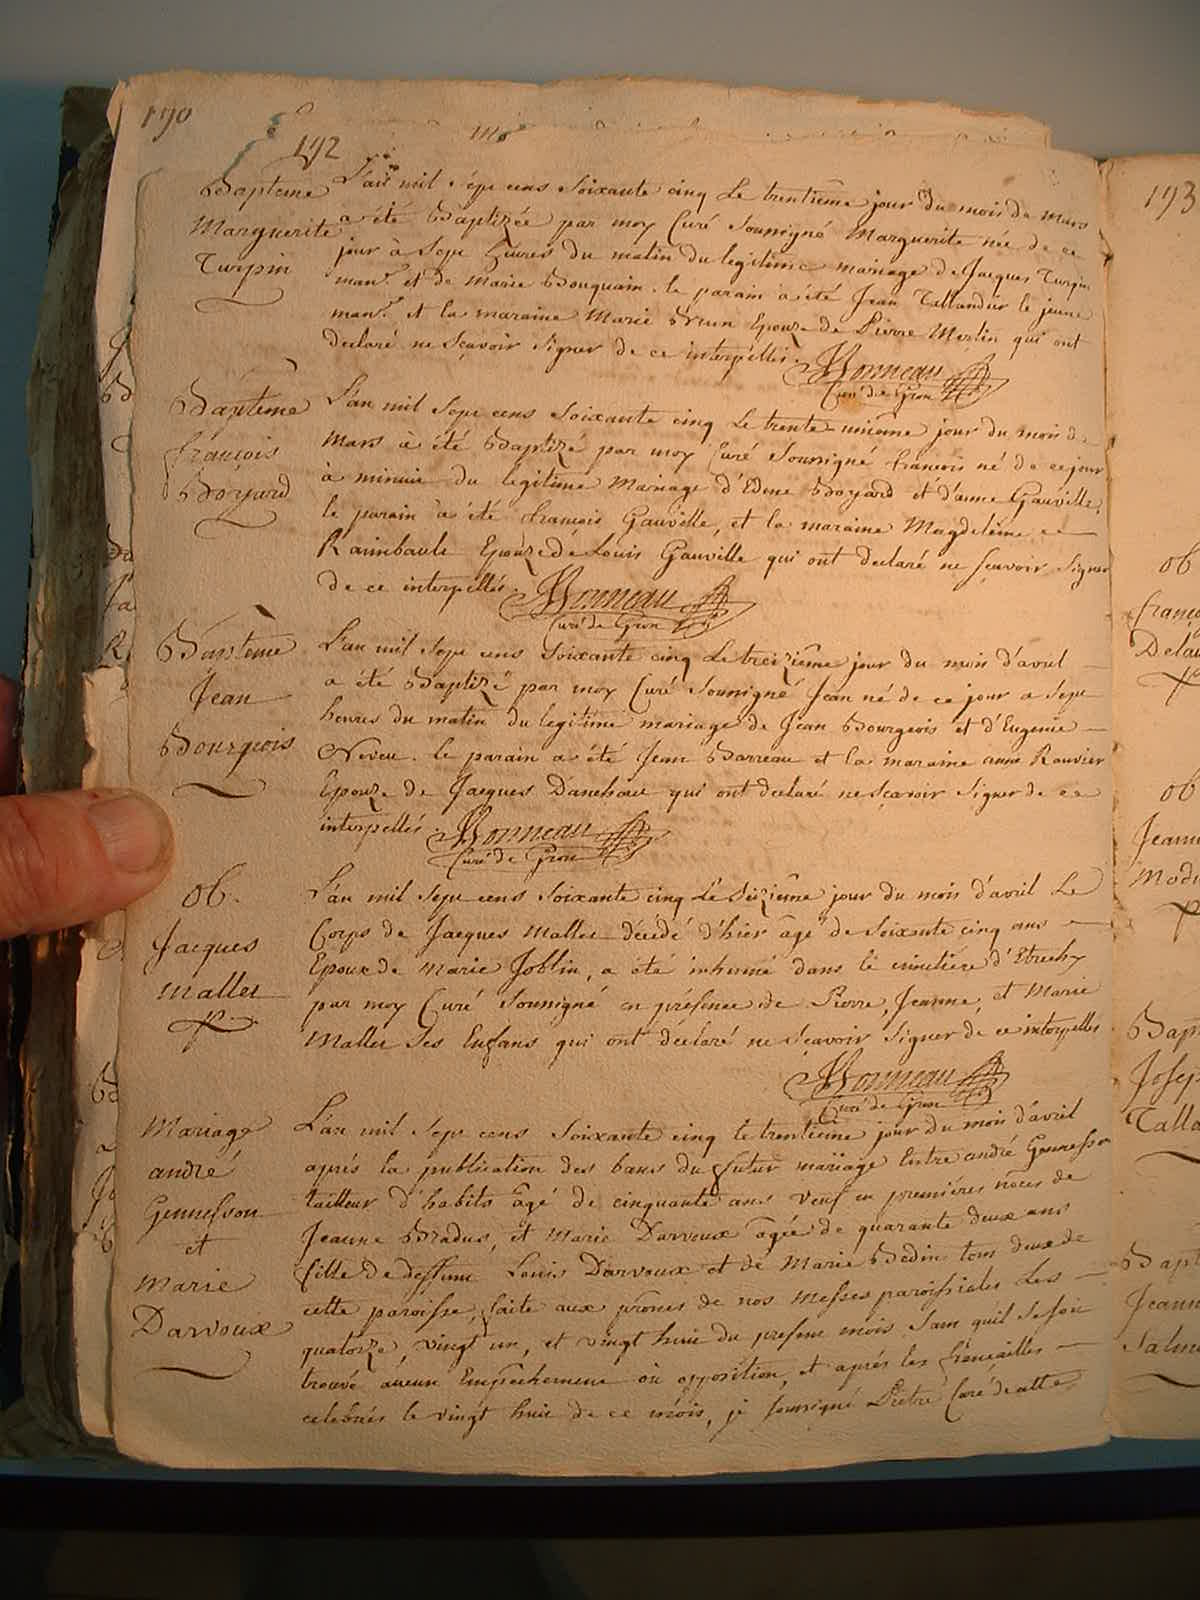 190
192
Bapteme
Marguerite
Turpin
L'an mil Sept cens Soixante cinq Le trentième jour du mois de Mars
a été Baptizée par moy Curé Soussigné Marguerite née de ce
jour à Sept heures du matin du legitime mariage de Jacques Turpin
man.r et de Marie Bouquain. le parain a été Jean Tallandier le jeune
man.r et la maraine Marie Brun Epouze de Pierre Merlin qui ont
declaré ne Scavoir Signer de ce interpellés.
Monneau
Curé de Gron
Baptême
françois
Boyard
L'an mil Sept cens Soixante cinq Le trente-unième jour du mois de
Mars à été Baptizé par moy Curé Soussigné francois né de ce jour
à minuit du legitime Mariage d'Edme Boyard et d'anne Gauville,
le parain à été françois Gauville, et la maraine Magdeleine
Raimbault Epouze de Louis Gauville qui ont declaré ne scavoir Signer
de ce interpellés.
Monneau
Curé de Gron
Baptême
Jean
Bourgeois
L'an mil Sept cens Soixante cinq Le treizième jour du mois d'avril
a été Baptizé par moy Curé Soussigné Jean né de ce jour a Sept
heures du matin du legitime mariage de Jean Bourgeois et d'Eugenie
Neveu. le parain a été Jean Barreau et la maraine anne Rauvier
Epouze de Jacques qui ont declaré ne Scavoir Signer de ce
interpellés
Monneau
Curé de Gron
Ob.
Jacques
Mallet
L'an mil Sept cens Soixante cinq Le Sézième jour du mois d'avril Le
Corps de Jacques Mallet décédé d'hier âgé de Soixante cinq ans
Epoux de Marie Joblin, a été inhumé dans le cimetière d'Etrechy
par moy Curé Soussigné en présence de Pierre, Jeanne, et Marie
Mallet Ses Enfans qui ont déclaré ne Scavoir Signer de ce interpellés
Monneau
Curé de Gron
Mariage
andré
Gennesson
et
Marie
Darvoux
L'an mil Sept cens Soixante cinq le trentieme jour du mois d'avril
aprés la publication des bans du futur mariage Entre andré Gennesson
tailleur d'habits âgé de cinquante ans veuf en premiéres nôces de
Jeanne Bradus, et Marie Darvoux agée de quarante deux ans
fille de deffunt Louis Darvoux et de Marie Bedin tous deux de
cette paroisse, faite aux prônes de nos Messes paroissiales Les
quatorze, vingt un, et vingt huit du present mois Sans quil Se soit
trouvé aucun Empêchement ou opposition, et aprés les fiancailles
celebrés le vingt huit de ce mois, je soussigné Prêtre Curé de cette
193
Ob
Ob